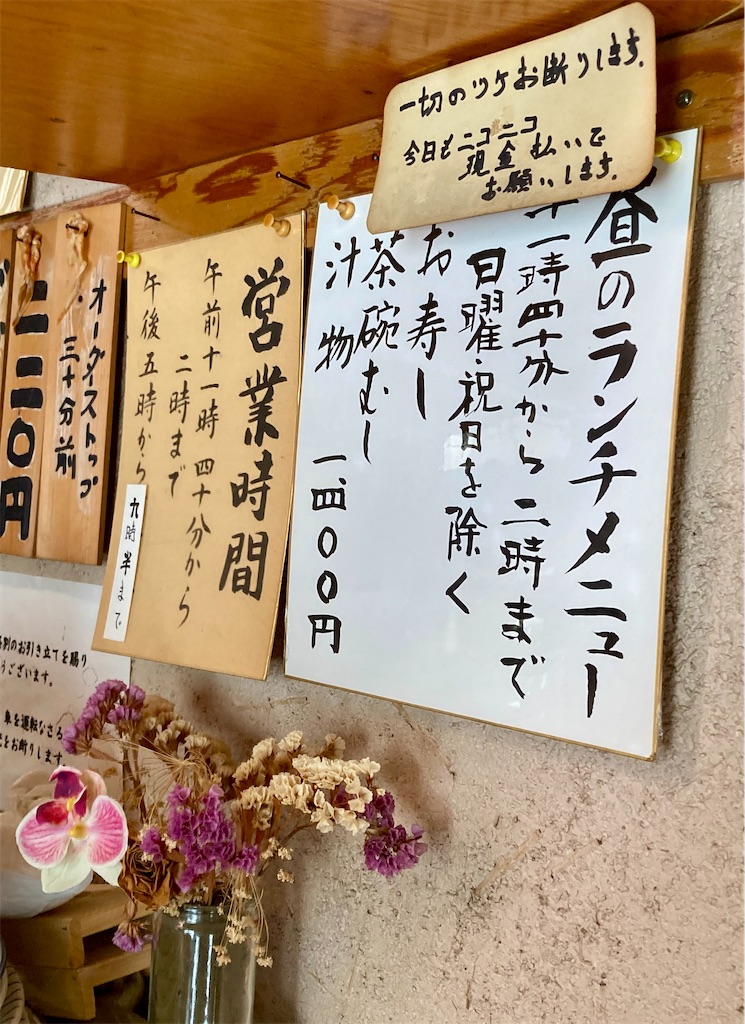 一切のツケお断りします.
今日もニコニコ
現金払いで
お願いします.
昼のランチメニュー
十一時四十分から二時まで
日曜・祝日を除く
お寿し
茶碗むし
汁物
一、四〇〇円
営業時間
午前十一時四十分から
二時まで
午後五時から
九時半まで
オーダーストップ
三十分前
二二〇円
お引き立てを賜り
うございます。
車を運転なさる
をお断りします。